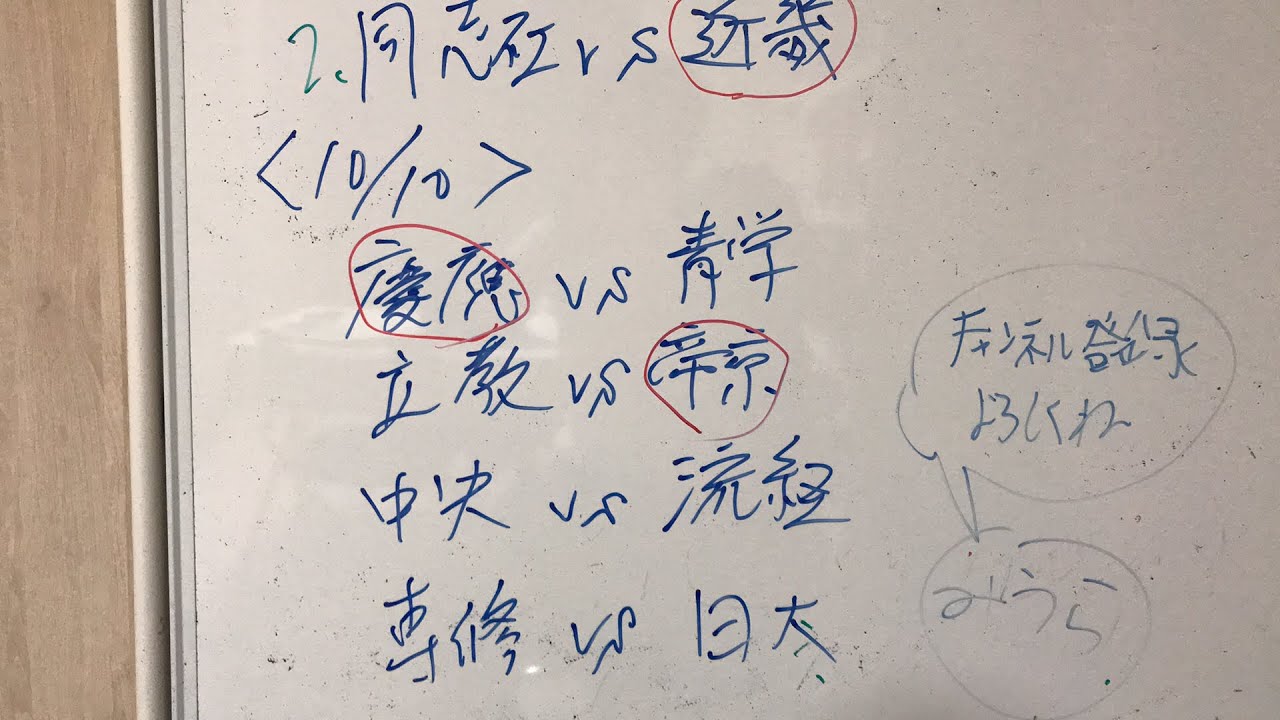 2. 同志社 vs 近畿
<10/10>
慶應 vs 青学
立教 vs 帝京
中央 vs 流経
専修 vs 日大
チャンネル登録
よろしくね
みうら